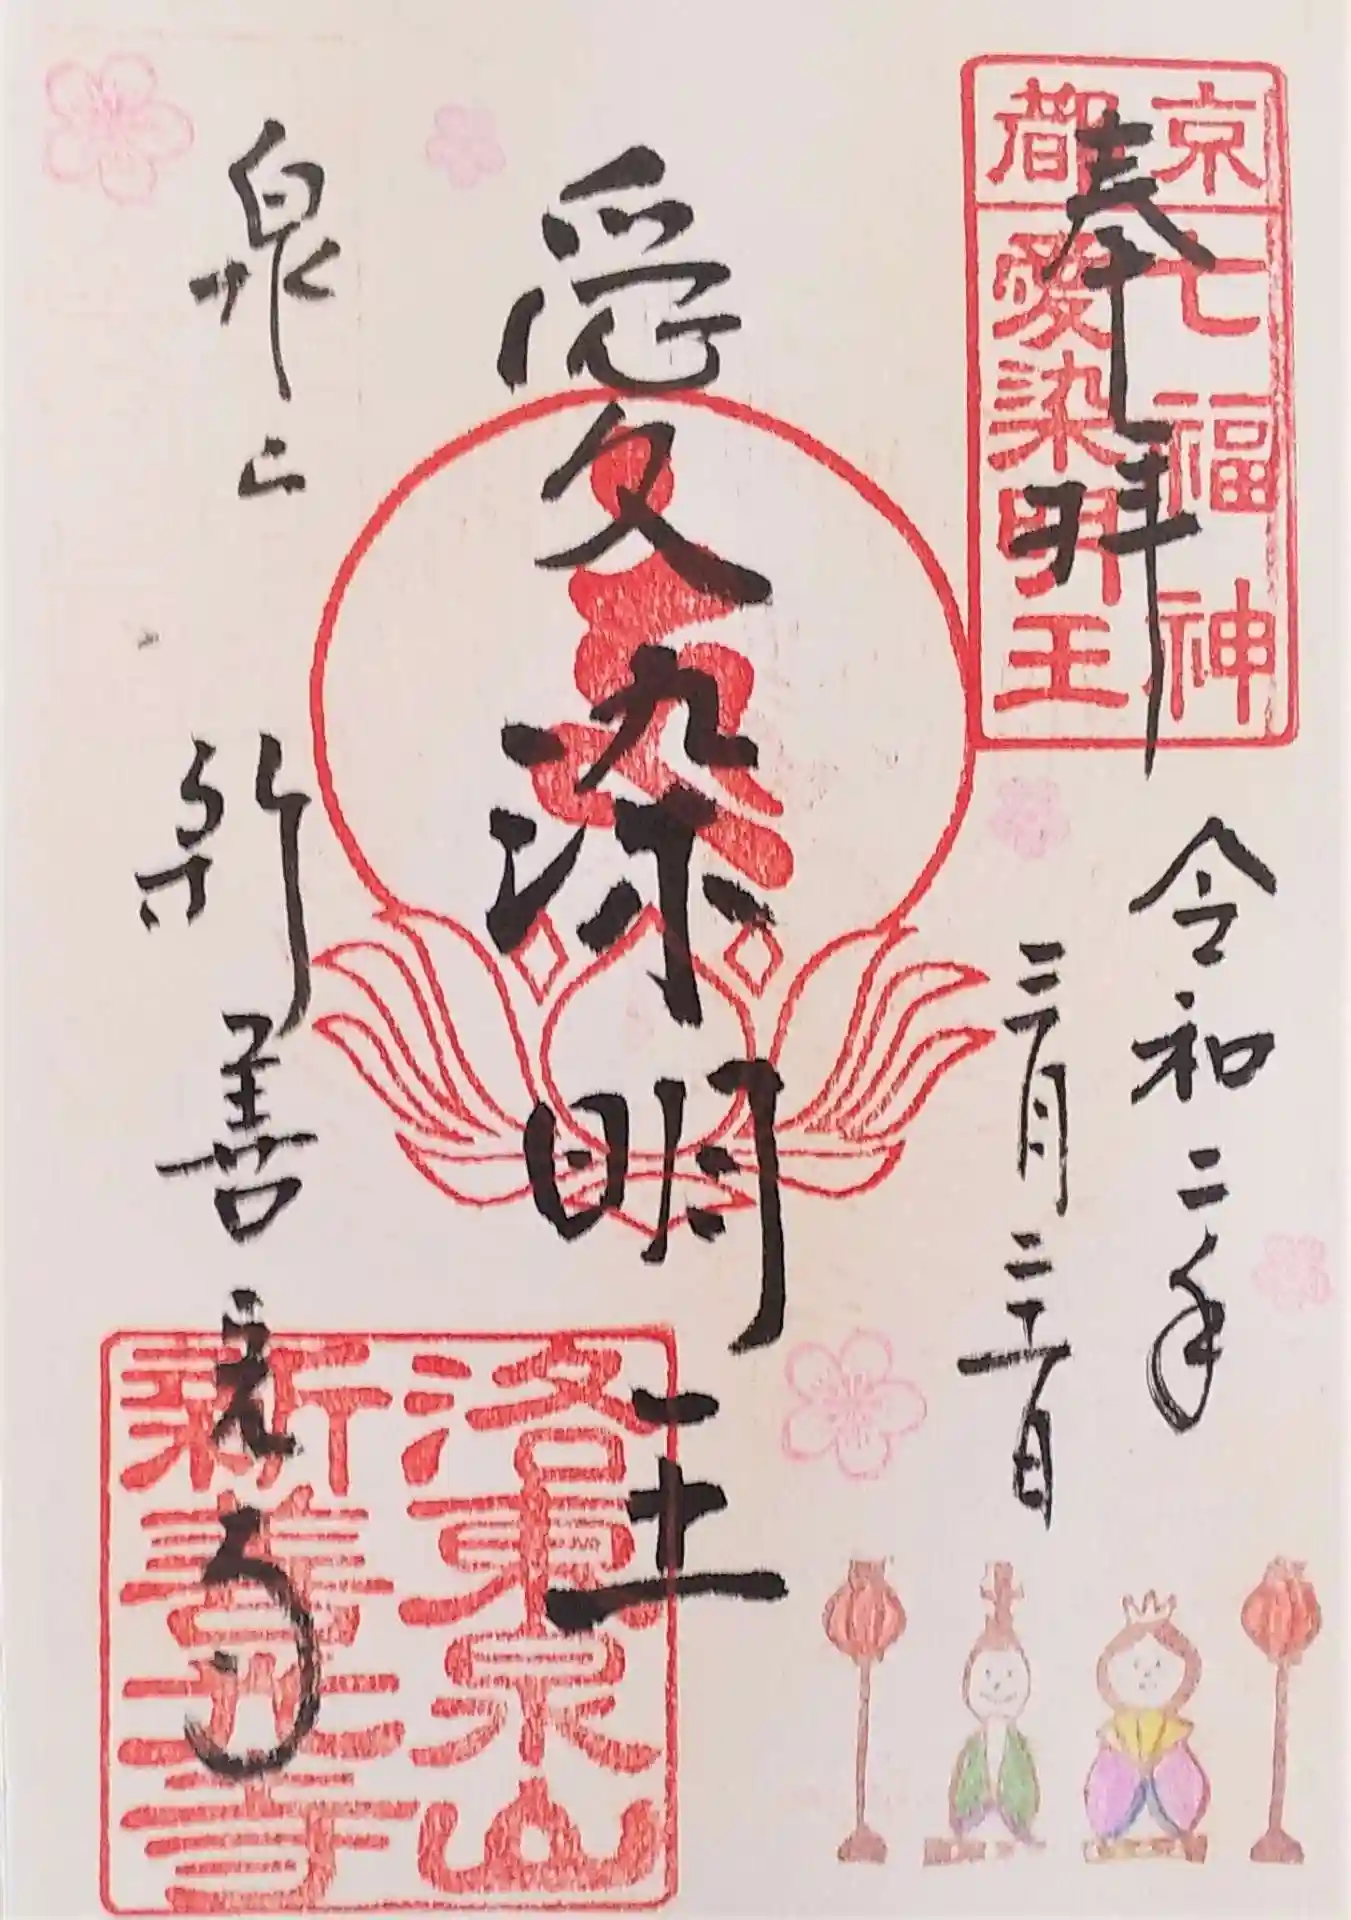 奉拝
京都
七福神
愛染明王
令和二年
三月二十一日
愛染明王
泉山
新善光寺
洛東泉山
新善光寺